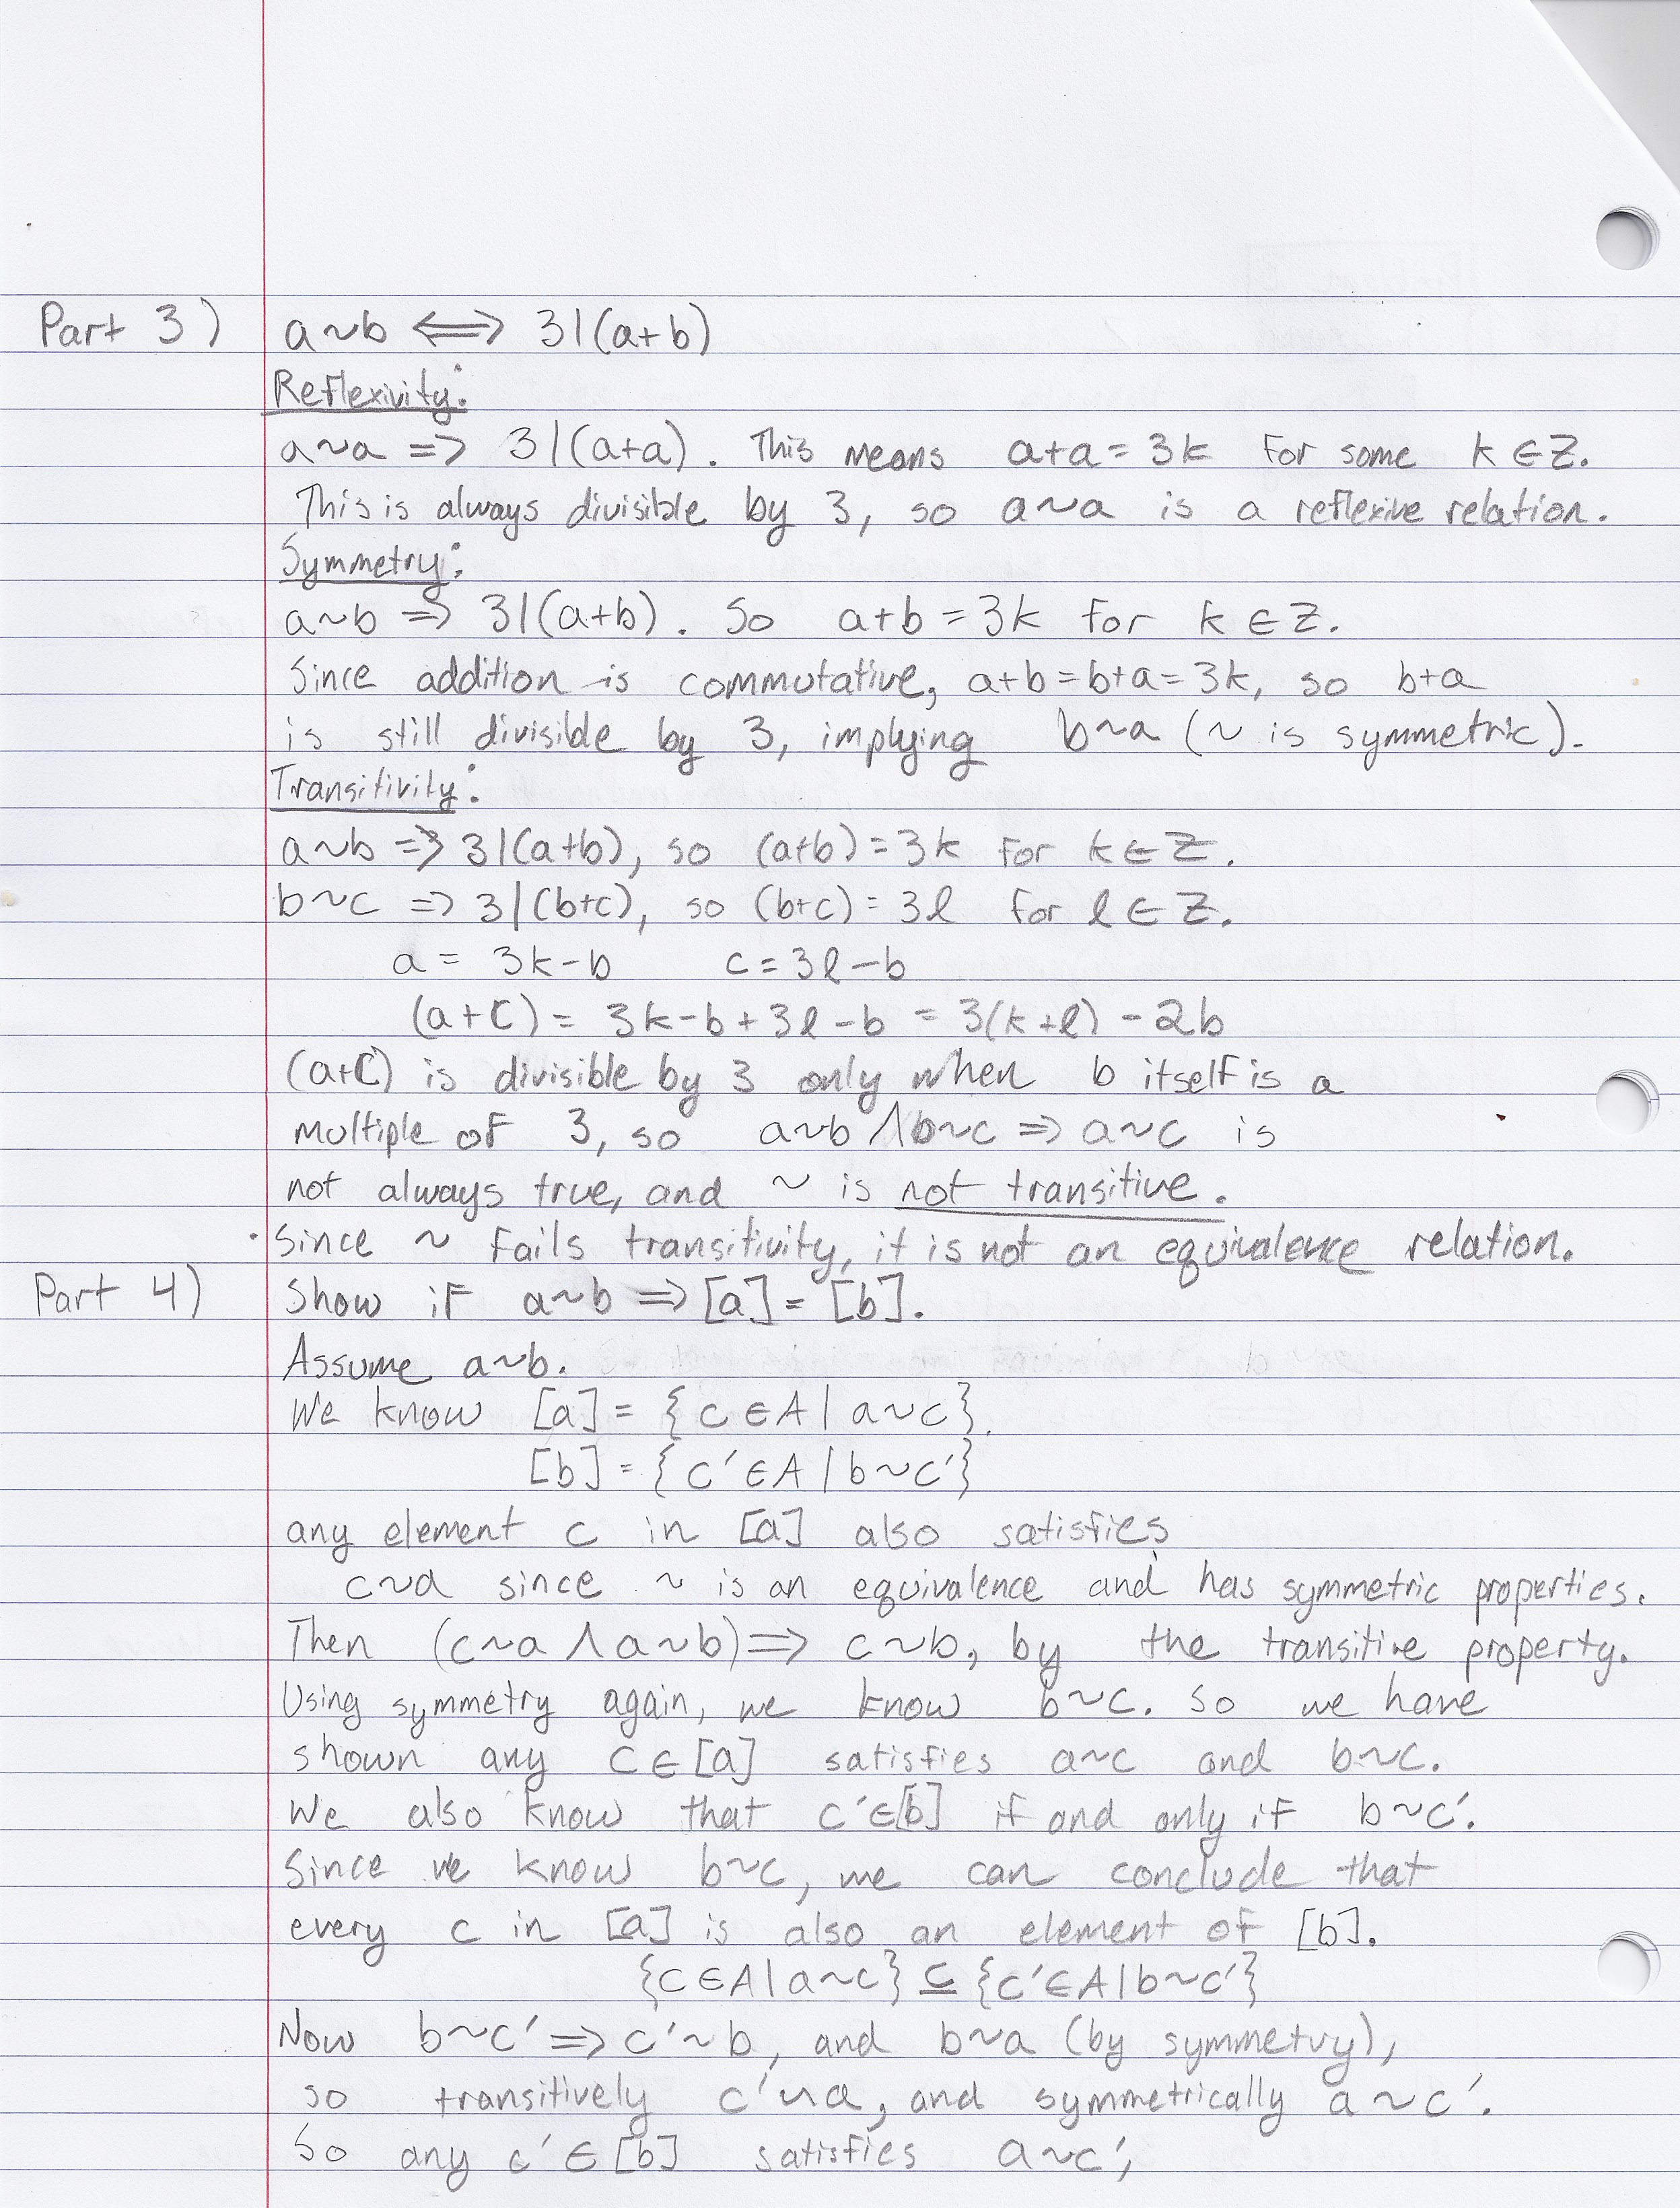 Part 3) a~b ⟺ 3|(a+b)
Reflexivity:
a~a => 3|(a+a). This means a+a=3k for some k∈Z.
This is always divisible by 3, so a~a is a reflexive relation.
Symmetry:
a~b => 3|(a+b). So a+b=3k for k∈Z.
Since addition is commutative, a+b=b+a=3k, so b+a
is still divisible by 3, implying b~a (~ is symmetric).
Transitivity:
a~b => 3|(a+b), so (a+b)=3k for k∈Z.
b~c => 3|(b+c), so (b+c)=3l for l∈Z.
a = 3k-b c=3l-b
(a+c) = 3k-b+3l-b = 3(k+l) -2b
(a+c) is divisible by 3 only when b itself is a
multiple of 3, so a~b ∧ b~c => a~c is
not always true, and ~ is not transitive.
·Since ~ fails transitivity, it is not an equivalence relation.
Part 4) Show if a~b => [a]=[b].
Assume a~b.
We know [a] = {c∈A | a~c}.
[b] = {c'∈A | b~c'}
any element c in [a] also satisfies
c~a since ~ is an equivalence and has symmetric properties.
Then (c~a ∧ a~b) => c~b, by the transitive property.
Using symmetry again, we know b~c. So we have
shown any c∈[a] satisfies a~c and b~c.
We also know that c'∈[b] if and only if b~c'.
Since we know b~c, we can conclude that
every c in [a] is also an element of [b].
{c∈A | a~c} ⊆ {c'∈A | b~c'}
Now b~c' => c'~b, and b~a (by symmetry),
so transitively c'~a, and symmetrically a~c'.
So any c'∈[b] satisfies a~c',